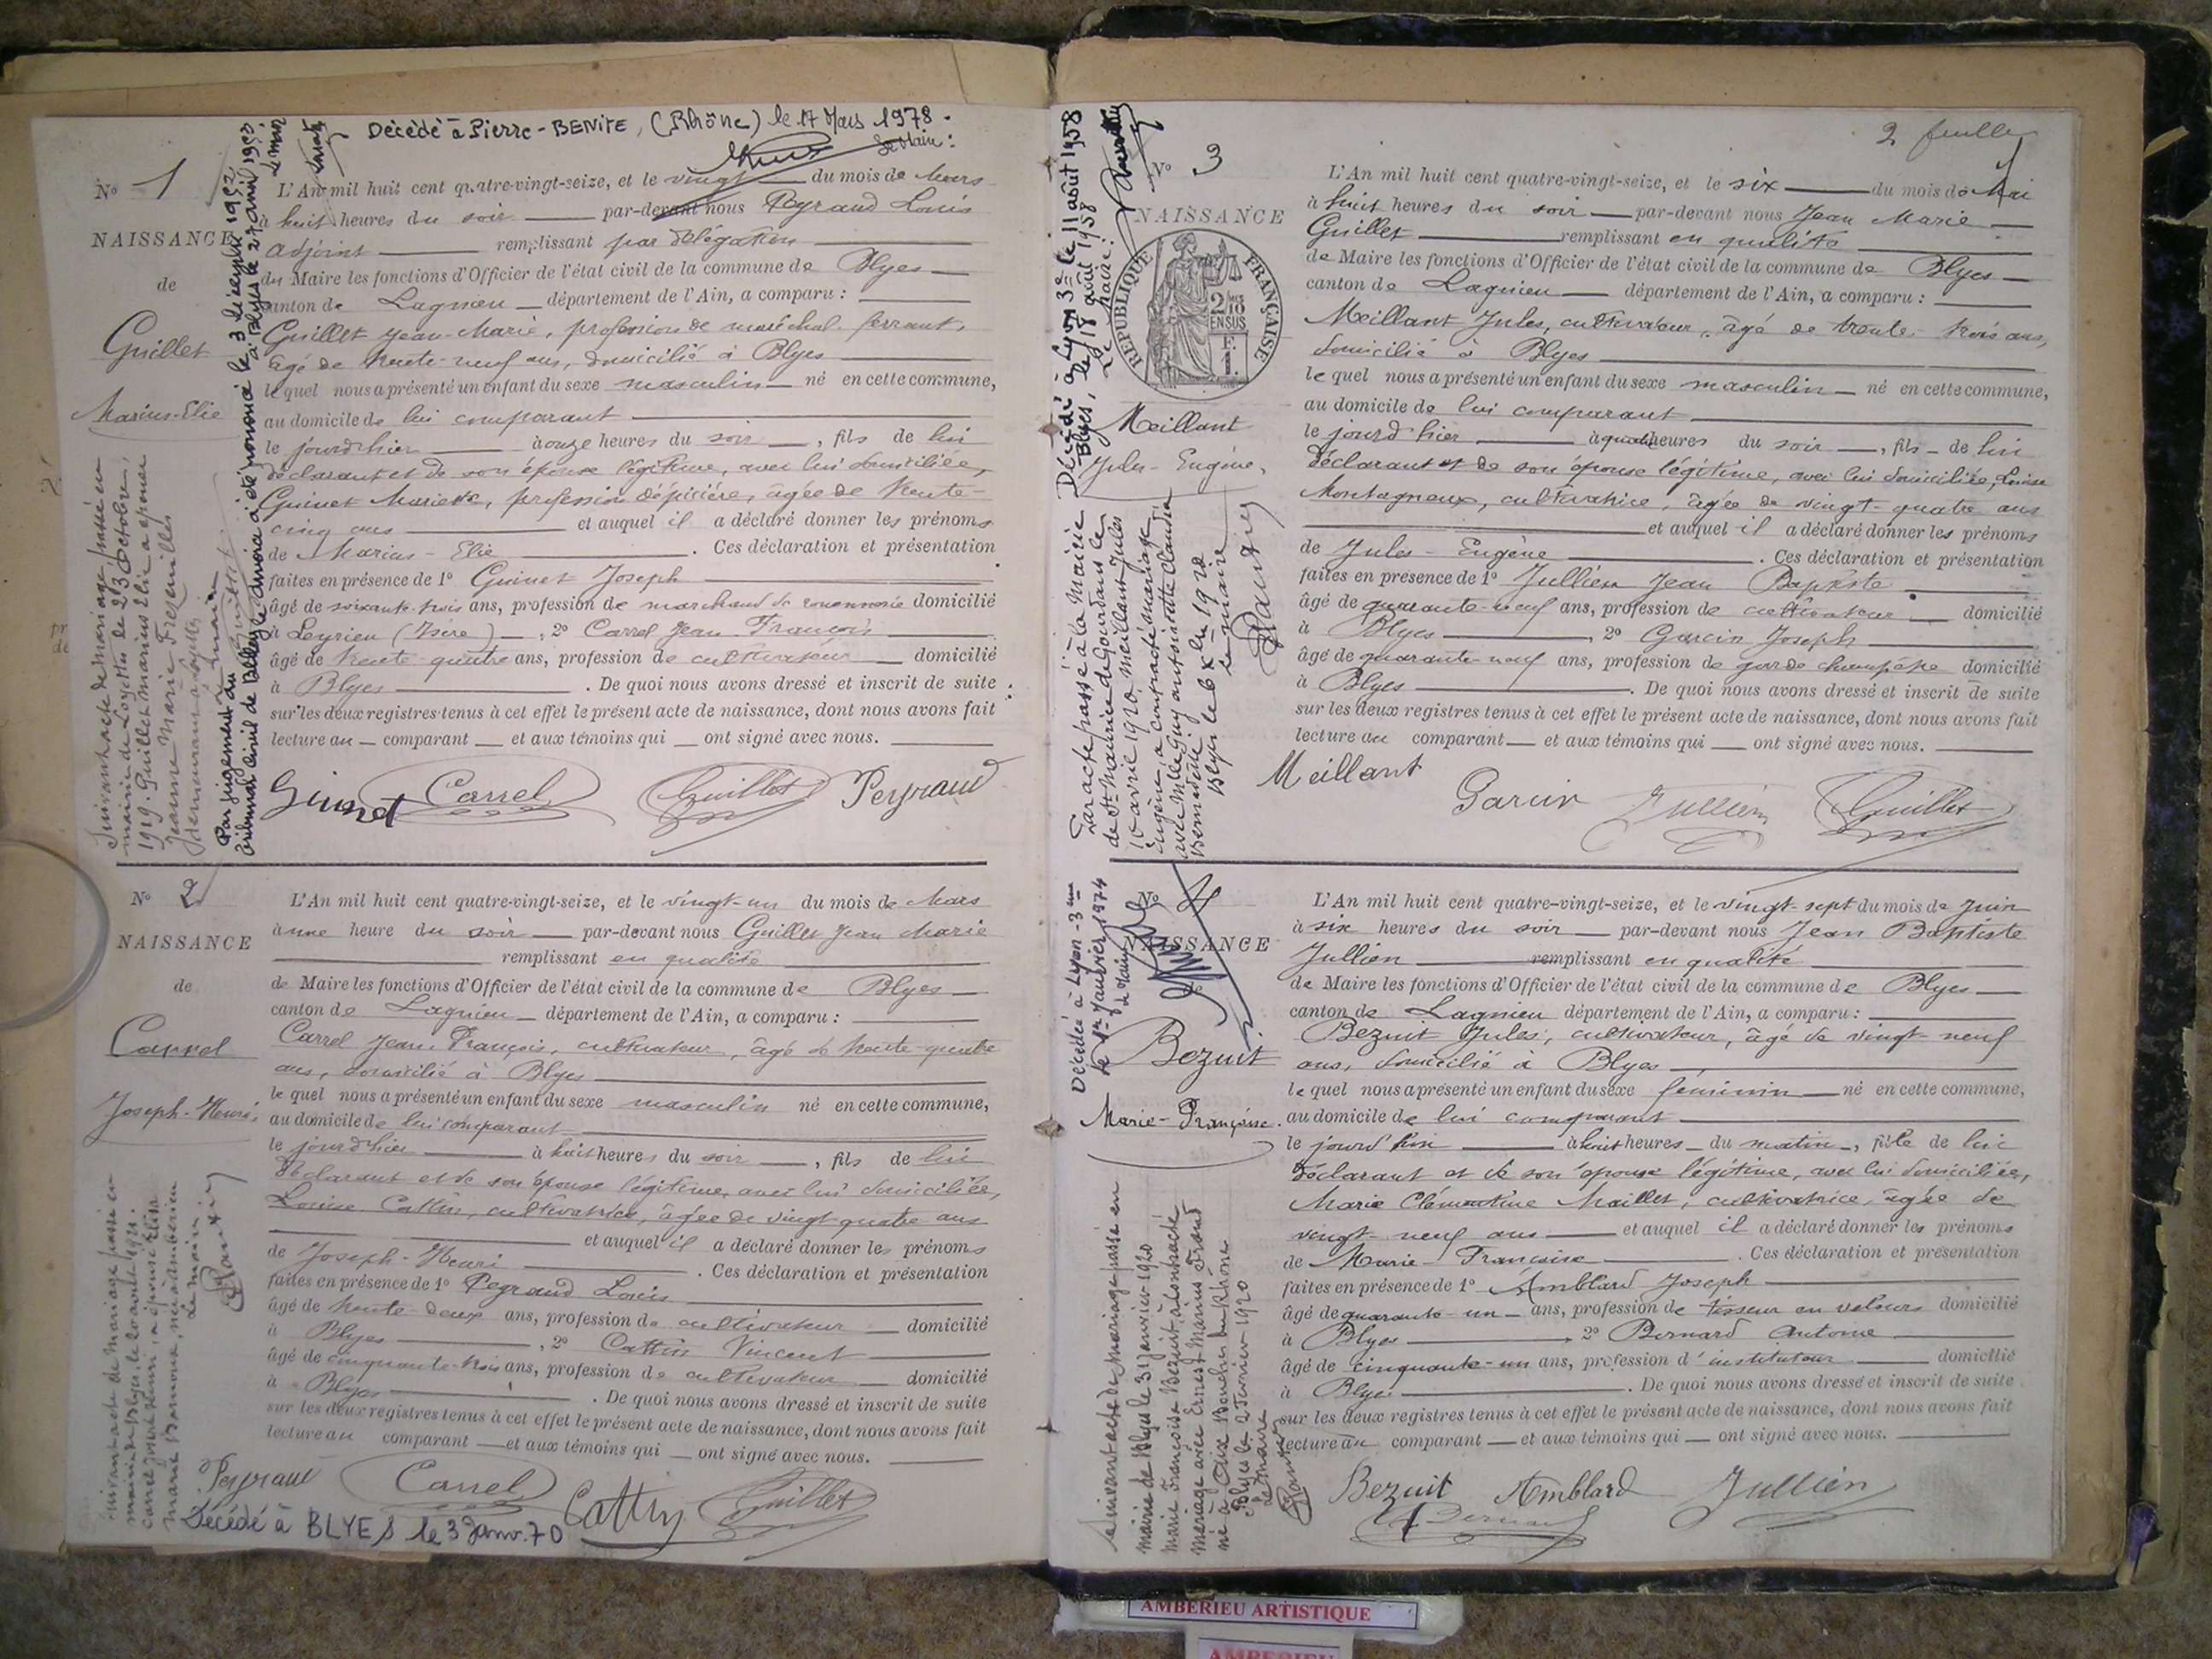 Décédé à Pierre-BENITE, (Rhône) le 17 Mars 1978.
Le Maire:
N° 1
NAISSANCE
de
Guillet
Marius-Elie
L'An mil huit cent quatre-vingt-seize, et le vingt du mois de Mars
à huit heures du soir par-devant nous Peyraud Louis
adjoint remplissant par délégation
du Maire les fonctions d'Officier de l'état civil de la commune de Blyes
canton de Lagnieu département de l'Ain, a comparu :
Guillet Jean-Marie, profession de maréchal ferrant,
âgé de trente-neuf ans, domicilié à Blyes
lequel nous a présenté un enfant du sexe masculin né en cette commune,
au domicile de lui comparant
le jourd'hier à onze heures du soir, fils de lui
déclarant et de son épouse légitime, avec lui domiciliée,
Guinet Mariette, profession d'épicière, âgée de trente-
cinq ans et auquel il a déclaré donner les prénoms
de Marius-Elie. Ces déclaration et présentation
faites en présence de 1° Guinet Joseph
âgé de soixante-trois ans, profession de marchand de rouennerie domicilié
à Leyrieu (Isère), 2° Carrel Jean François
âgé de trente-quatre ans, profession de cultivateur domicilié
à Blyes. De quoi nous avons dressé et inscrit de suite
sur les deux registres tenus à cet effet le présent acte de naissance, dont nous avons fait
lecture au comparant et aux témoins qui ont signé avec nous.
Guinet Carrel Guillet Peyraud
Suivant acte de mariage passé en
mairie de Loyettes le 23 Octobre
1919. Guillet Marius Elie a épousé
Jeanne Marie
demeurant à Loyettes
Le maire
Par jugement du
tribunal civil de Belley le divorce a été prononcé le 3 décembre 1952
à Blyes le 27 avril 1953
Le Maire
N° 2
NAISSANCE
de
Carrel
Joseph-Henri
L'An mil huit cent quatre-vingt-seize, et le vingt-un du mois de Mars
à une heure du soir par-devant nous Guillet Jean Marie
remplissant en qualité
de Maire les fonctions d'Officier de l'état civil de la commune de Blyes
canton de Lagnieu département de l'Ain, a comparu :
Carrel Jean François, cultivateur, âgé de trente-quatre
ans, domicilié à Blyes
lequel nous a présenté un enfant du sexe masculin né en cette commune,
au domicile de lui comparant
le jourd'hier à huit heures du soir, fils de lui
déclarant et de son épouse légitime, avec lui domiciliée,
Louise Cattin, cultivatrice, âgée de vingt-quatre ans
et auquel il a déclaré donner les prénoms
de Joseph-Henri. Ces déclaration et présentation
faites en présence de 1° Peyraud Louis
âgé de trente-deux ans, profession de cultivateur domicilié
à Blyes, 2° Cattin Vincent
âgé de cinquante-trois ans, profession de cultivateur domicilié
à Blyes. De quoi nous avons dressé et inscrit de suite
sur les deux registres tenus à cet effet le présent acte de naissance, dont nous avons fait
lecture au comparant et aux témoins qui ont signé avec nous.
Peyraud Carrel Cattin Guillet
Décédé à BLYES le 3 Janv. 70
Suivant acte de mariage passé en
mairie de Blyes le
Carrel Joseph Henri, a épousé Elisa
Marie
Le maire
2 feuille
N° 3
NAISSANCE
RÉPUBLIQUE FRANÇAISE
Meillant
Jules-Eugène
L'An mil huit cent quatre-vingt-seize, et le six du mois de Mai
à huit heures du soir par-devant nous Jean Marie
Guillet remplissant en qualité
de Maire les fonctions d'Officier de l'état civil de la commune de Blyes
canton de Lagnieu département de l'Ain, a comparu :
Meillant Jules, cultivateur, âgé de trente-trois ans,
domicilié à Blyes
lequel nous a présenté un enfant du sexe masculin né en cette commune,
au domicile de lui comparant
le jourd'hier à quatre heures du soir, fils de lui
déclarant et de son épouse légitime, avec lui domiciliée, Louise
Montagneux, cultivatrice, âgée de vingt-quatre ans
et auquel il a déclaré donner les prénoms
de Jules-Eugène. Ces déclaration et présentation
faites en présence de 1° Jullien Jean Baptiste
âgé de quarante-neuf ans, profession de cultivateur domicilié
à Blyes, 2° Garcin Joseph
âgé de quarante-neuf ans, profession de garde champêtre domicilié
à Blyes. De quoi nous avons dressé et inscrit de suite
sur les deux registres tenus à cet effet le présent acte de naissance, dont nous avons fait
lecture au comparant et aux témoins qui ont signé avec nous.
Meillant Garcin Jullien Guillet
Décédé à Lyon 3e le 11 août 1958
Blyes, le 18 août 1958
Le Maire:
Par acte passé à la Mairie
de St Maurice de Gourdans le
10 avril 1920, Meillant Jules
Eugène, a contracté mariage
avec Mlle Guy Antoinette Claudia
Le maire
N° 4
NAISSANCE
Bezuit
Marie-Françoise
L'An mil huit cent quatre-vingt-seize, et le vingt-sept du mois de Juin
à six heures du soir par-devant nous Jean Baptiste
Jullien remplissant en qualité
de Maire les fonctions d'Officier de l'état civil de la commune de Blyes
canton de Lagnieu département de l'Ain, a comparu :
Bezuit Jules, cultivateur, âgé de vingt-neuf
ans, domicilié à Blyes
lequel nous a présenté un enfant du sexe féminin né en cette commune,
au domicile de lui comparant
le jourd'hui à huit heures du matin, fille de lui
déclarant et de son épouse légitime, avec lui domiciliée,
Marie Clémentine Maillet, cultivatrice, âgée de
vingt-neuf ans et auquel il a déclaré donner les prénoms
de Marie Françoise. Ces déclaration et présentation
faites en présence de 1° Amblard Joseph
âgé de quarante-un ans, profession de tisseur en velours domicilié
à Blyes 2° Bernard Antoine
âgé de cinquante-un ans, profession d'instituteur domicilié
à Blyes. De quoi nous avons dressé et inscrit de suite
sur les deux registres tenus à cet effet le présent acte de naissance, dont nous avons fait
lecture au comparant et aux témoins qui ont signé avec nous.
Bezuit Amblard Jullien
Bernard
Décédée à Lyon-3ème
le 1er Janvier 1974
Le Maire
Suivant acte de mariage passé en
mairie de Blyes le 31 janvier 1920
Marie Françoise Bezuit, a contracté
mariage avec Ernest Marius
né à Aix Bouches du Rhône
Blyes le 2 Février 1920
Le Maire
AMBERIEU ARTISTIQUE
AMBERIEU